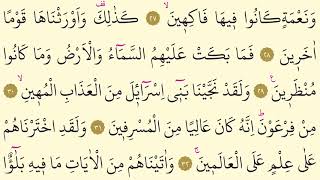 وَنَعْمَةٍ كَانُوا فِيهَا فَاكِهِينَۙ ﴿٢٧﴾ كَذٰلِكَ۠ وَاَوْرَثْنَاهَا قَوْمًا
اٰخَرِينَ ﴿٢٨﴾ فَمَا بَكَتْ عَلَيْهِمُ السَّمَٓاءُ وَالْاَرْضُ وَمَا كَانُوا
مُنْظَرِينَ۟ ﴿٢٩﴾ وَلَقَدْ نَجَّيْنَا بَنِٓى اِسْرَٓائِلَ مِنَ الْعَذَابِ الْمُهِينِۙ ﴿٣٠﴾
مِنْ فِرْعَوْنَۜ اِنَّهُ كَانَ عَالِيًا مِنَ الْمُسْرِفِينَ ﴿٣١﴾ وَلَقَدِ اخْتَرْنَاهُمْ
عَلٰى عِلْمٍ عَلَى الْعَالَمِينَۚ ﴿٣٢﴾ وَاٰتَيْنَاهُمْ مِنَ الْاٰيَاتِ مَا فِيهِ بَلٰٓؤٌا